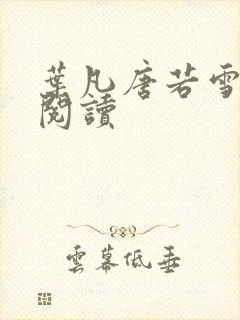 葉凡唐若雪
閱讀
雲幕低垂